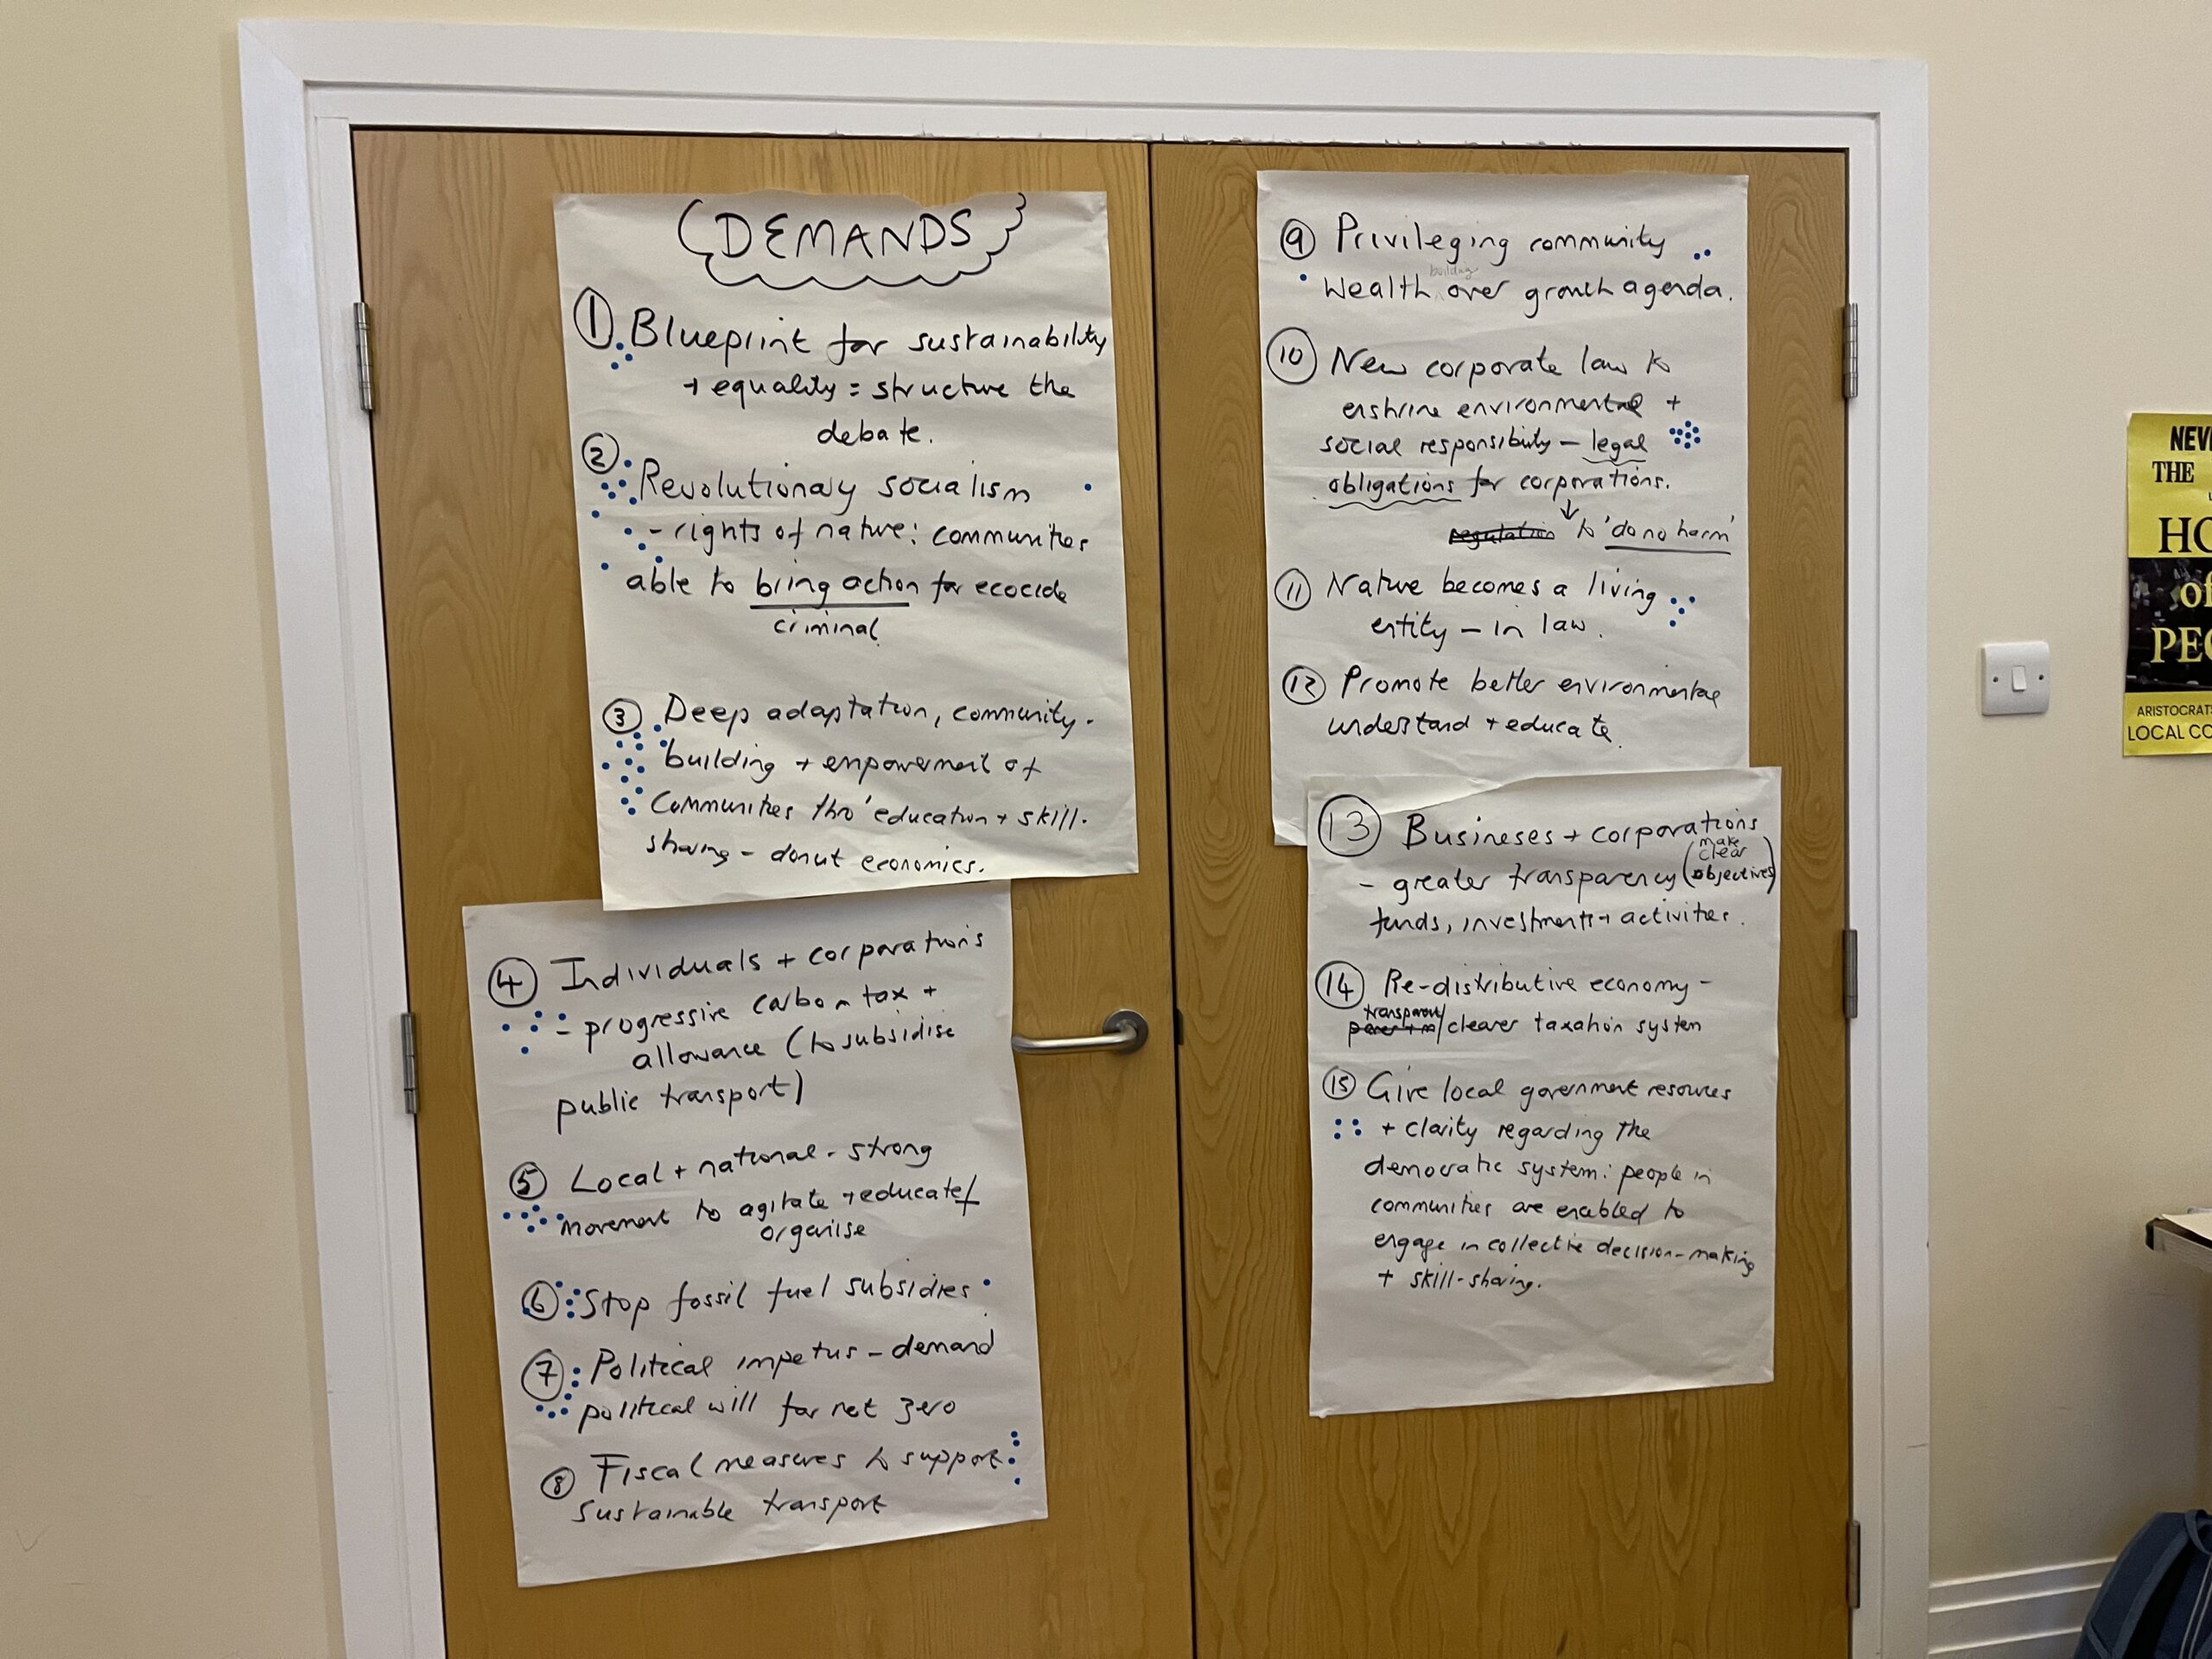 DEMANDS
① Blueprint for sustainability
+ equality = structure the
debate.
② Revolutionary socialism
- rights of nature: communities
able to bring action for ecocide
criminal
③ Deep adaptation, community-
building + empowerment of
communities thro' education + skill-
sharing - donut economics.
④ Individuals + corporations
- progressive carbon tax +
allowance (to subsidise
public transport)
⑤ Local + national - strong
movement to agitate + educate/
organise
⑥ Stop fossil fuel subsidies
⑦ Political impetus - demand
political will for net zero
⑧ Fiscal measures to support
sustainable transport
⑨ Privileging community
building
Wealth over growth agenda.
⑩ New corporate law to
enshrine environmental +
social responsibility - legal
obligations for corporations.
↓
regulation to 'do no harm'
⑪ Nature becomes a living
entity - in law.
⑫ Promote better environmental
understand + educate.
⑬ Busineses + corporations
- greater transparency (make clear objectives)
funds, investments + activities.
⑭ Re-distributive economy -
transparent/clearer taxation system
⑮ Give local government resources
+ clarity regarding the
democratic system: people in
communities are enabled to
engage in collective decision-making
+ skill-sharing.
THE
of
LOCAL